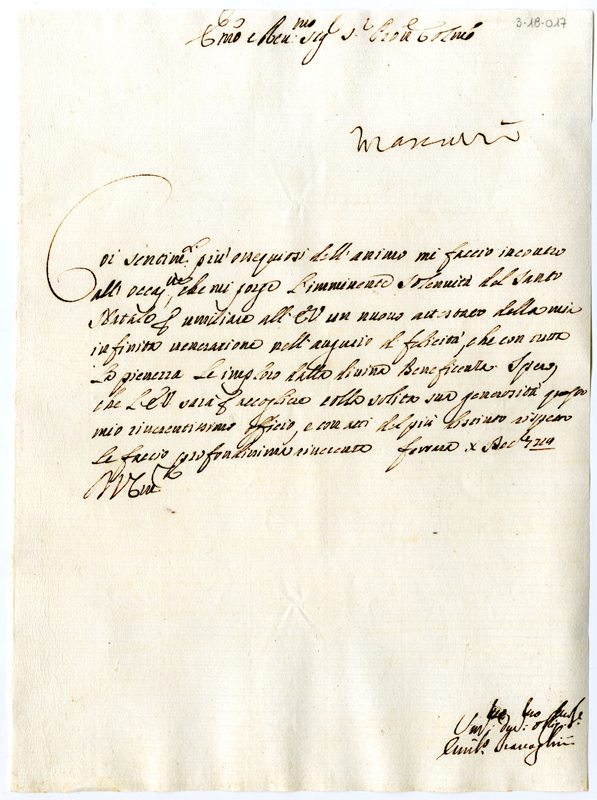 3-18-017
Emo e Revmo Sigr Sr Prone Colmo
Coi sentimti più ossequiosi dell'animo mi faccio incontro
all'occasne, che mi porge l'imminente Solennità del Santo
Natale di umiliare all'EV un nuovo attestato della mia
infinita venerazione nell'augurio di felicità, che con tutta
la pienezza le imploro dalla divina Beneficenza. Spero,
che L'EV sarà per accogliere colla solita sua generosità questo
mio riverentissimo officio, e con atti del più distinto rispetto
le faccio profondissima riverenza Ferrara X Decre 1719